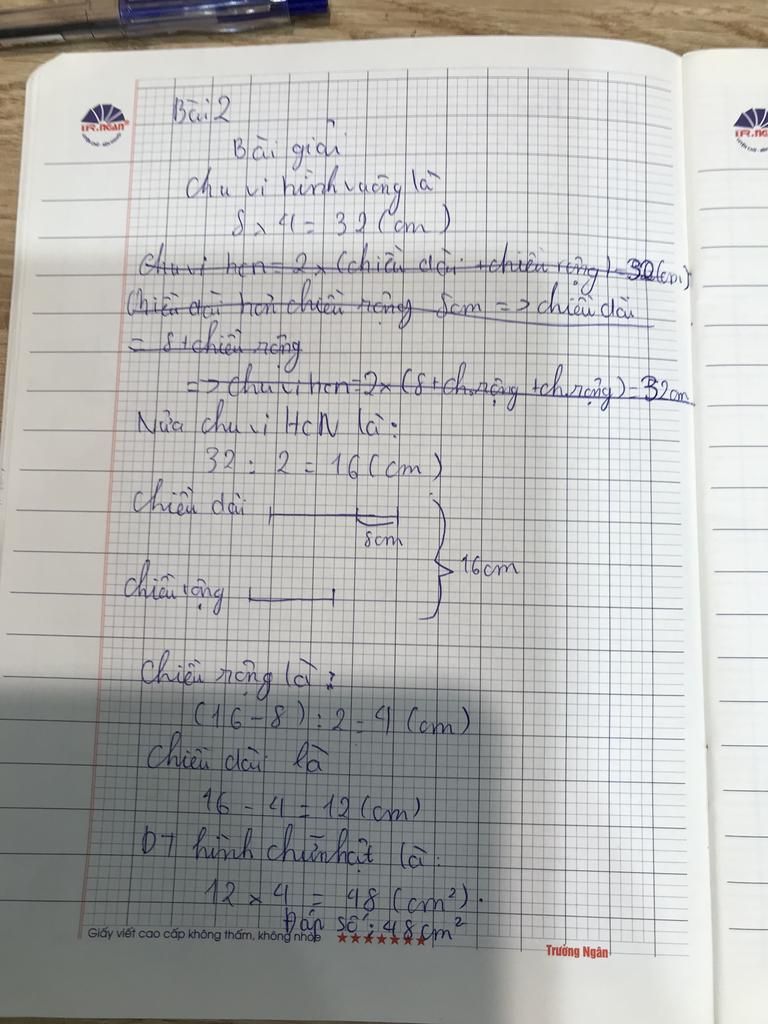 TR.NGAN
TR.NGAN
Bài 2
Bài giải
Chu vi hình vuông là
8 x 4 = 32 (cm)
Chu vi hcn = 2 x (chiều dài + chiều rộng) = 32 (cm)
Chiều dài hơn chiều rộng 8cm => chiều dài
= 8 + chiều rộng
=> chu vi hcn = 2 x (8 + ch.rộng + ch.rộng) = 32cm
Nửa chu vi HCN là:
32 : 2 = 16 (cm)
Chiều dài
8cm
16cm
Chiều rộng
Chiều rộng là:
(16 - 8) : 2 = 4 (cm)
Chiều dài là
16 - 4 = 12 (cm)
DT hình chữ nhật là:
12 x 4 = 48 (cm²).
Đáp số: 48cm²
Giấy viết cao cấp không thấm, không nhòe ★★★★★★★
Trường Ngân